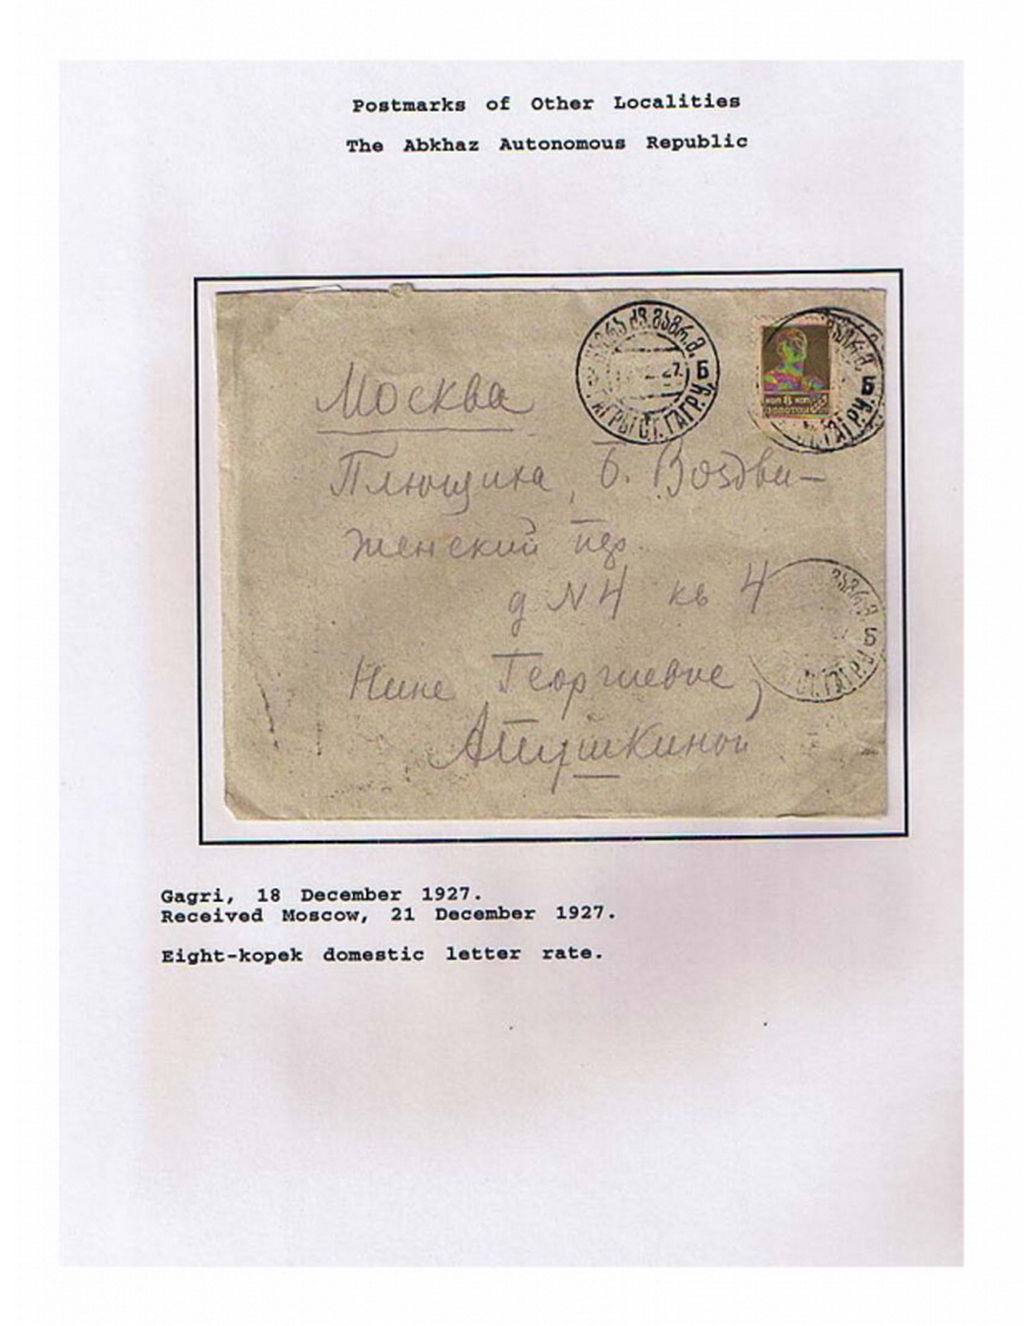 Postmarks of Other Localities
The Abkhaz Autonomous Republic
Б
27.
СТ. ГАГР. У.
Москва
КОП 8 КОП
ЗОЛОТОМ
Б
ГАГР. У.
Плющиха, б. Воздви-
женский пер.
д N4 кв 4
Б
СТ. ГАГР. У.
Нине Георгиевне
Апушкиной
Gagri, 18 December 1927.
Received Moscow, 21 December 1927.
Eight-kopek domestic letter rate.